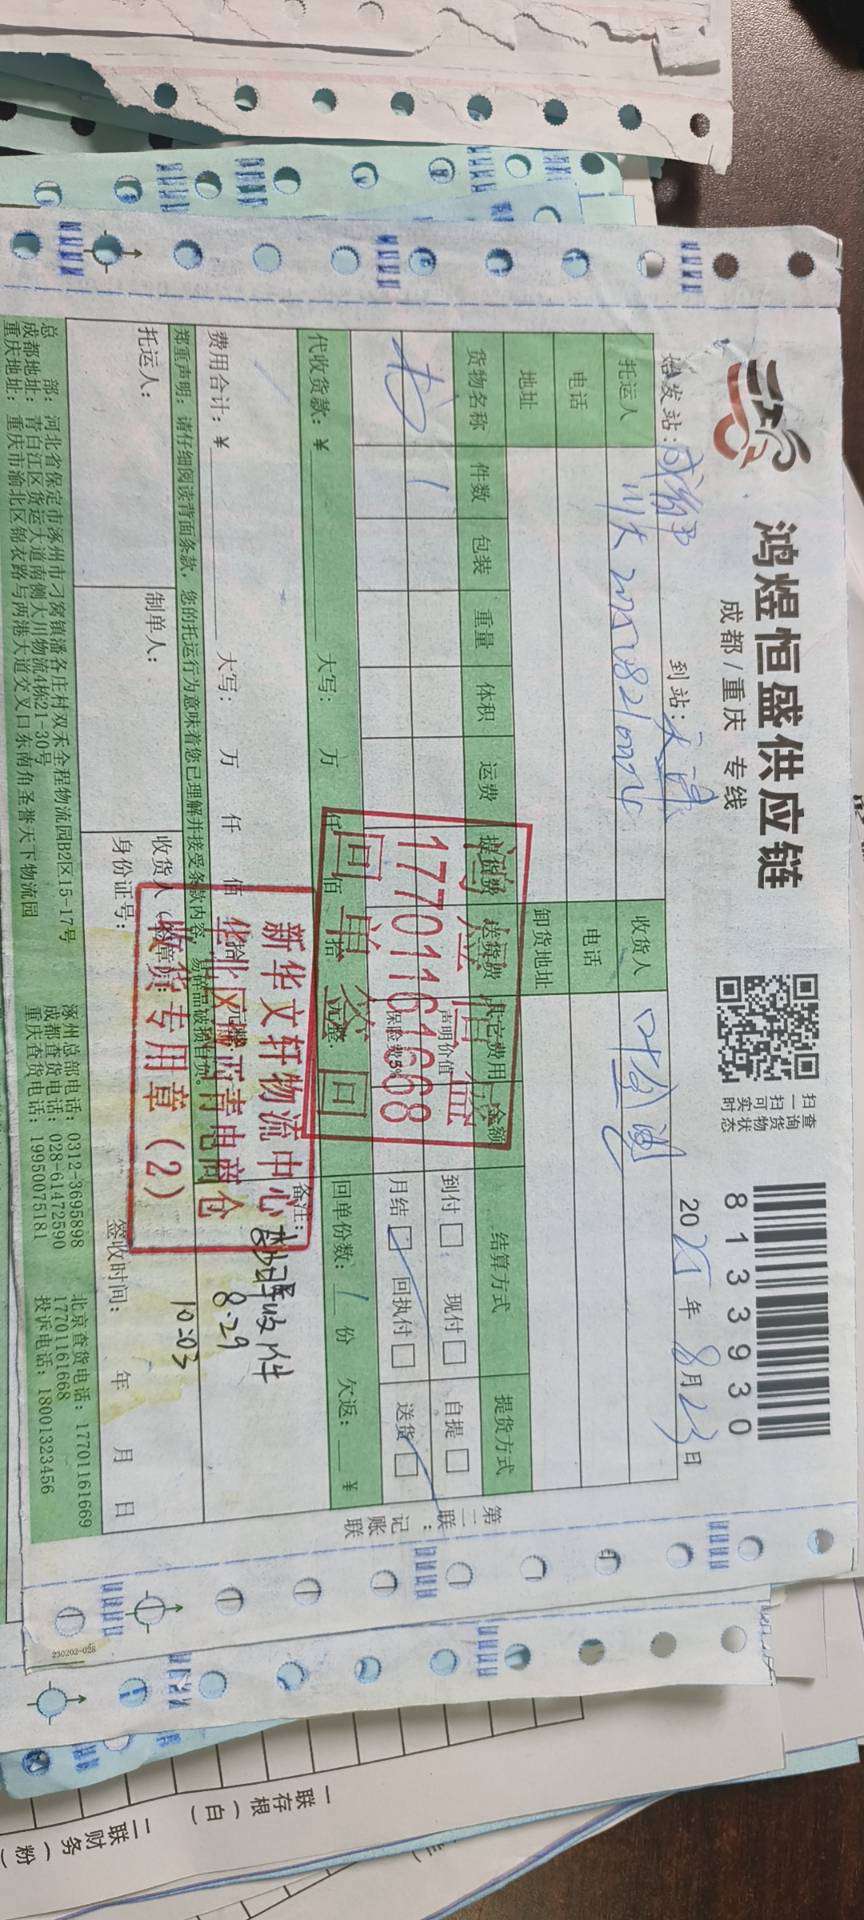 鸿煜恒盛供应链
成都/重庆 专线
扫一扫实时
查询货物状态
8133930
始发站:成都
到站:天津
2025年8月23日
托运人 川大20250821000
收货人 叶金
电话
电话
地址
卸货地址
货物名称 件数 包装 重量 体积 运费 提货费 送货费 其它费用 金额 结算方式 提货方式
书 1
声明价值
保险费5%
到付 现付
月结 回执付
自提
送货
代收货款:¥ 大写: 万 仟 佰 拾 元整
回单份数:1份 欠返: ¥
费用合计:¥ 大写: 万 仟 佰 拾
备注:
收件
8.29
10:03
郑重声明:请仔细阅读背面条款,您的托运行为意味着您已理解并接受条款内容,易碎品破损自负。
托运人:
制单人:
收货人
身份证号:
签收时间: 年 月 日
17701161668
回单签回
新华文轩物流中心
华北区
青电商仓
收货专用章(2)
总 部:河北省保定市涿州市刁窝镇潘各庄村双禾全程物流园B2区15-17号
成都地址:青白江区货运大道南侧大川物流4栋21-30号
重庆地址:重庆市渝北区锦衣路与两港大道交叉口东南角圣誉天下物流园
涿州总部电话:0312-3695898
成都查货电话:028-61472590
重庆查货电话:19950075181
北京查货电话:17701161669
17701161668
投诉电话:18001323456
第二联:记账联
230202-058
一联存根(白)
二联财务(粉)